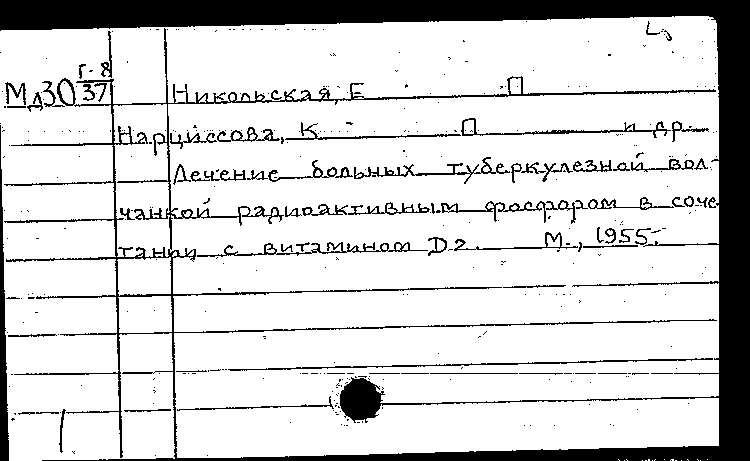 Мд30 Г-8/37
Никольская, Е П
Нарциссова, К П и др.
Лечение больных туберкулезной вол-
чанкой радиоактивным фосфором в соче
тании с витамином D2. М., 1955.